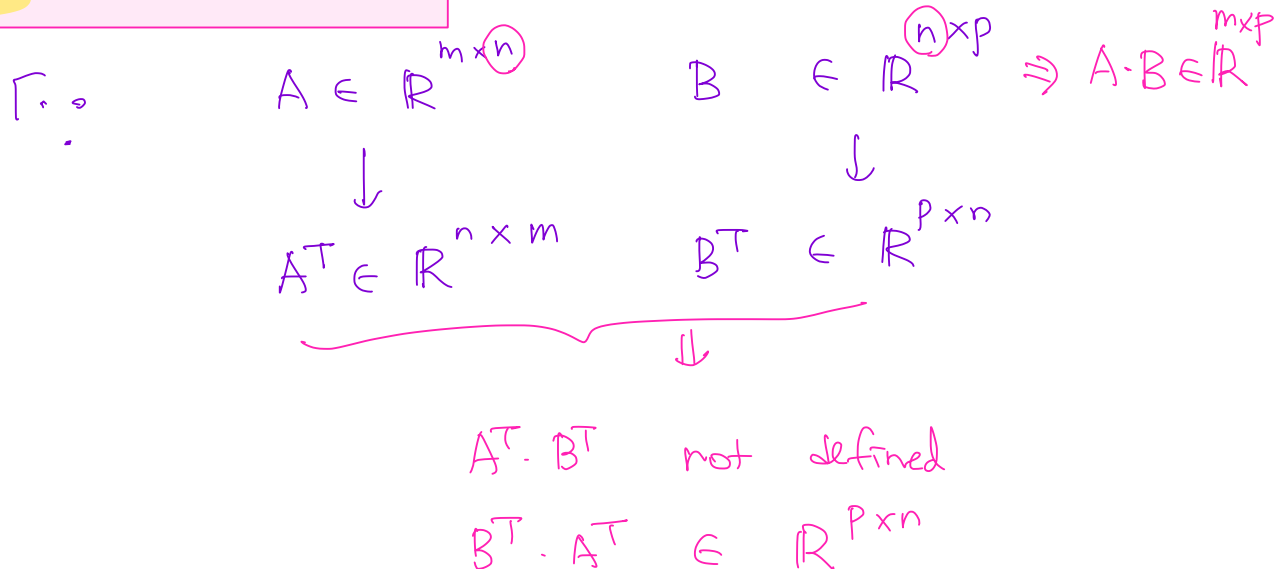 A ∈ ℝ^{m×n} B ∈ ℝ^{n×p} ⇒ A·B ∈ ℝ^{m×p}
A^T ∈ ℝ^{n×m} B^T ∈ ℝ^{p×n}
A^T · B^T not defined
B^T · A^T ∈ ℝ^{p×n}